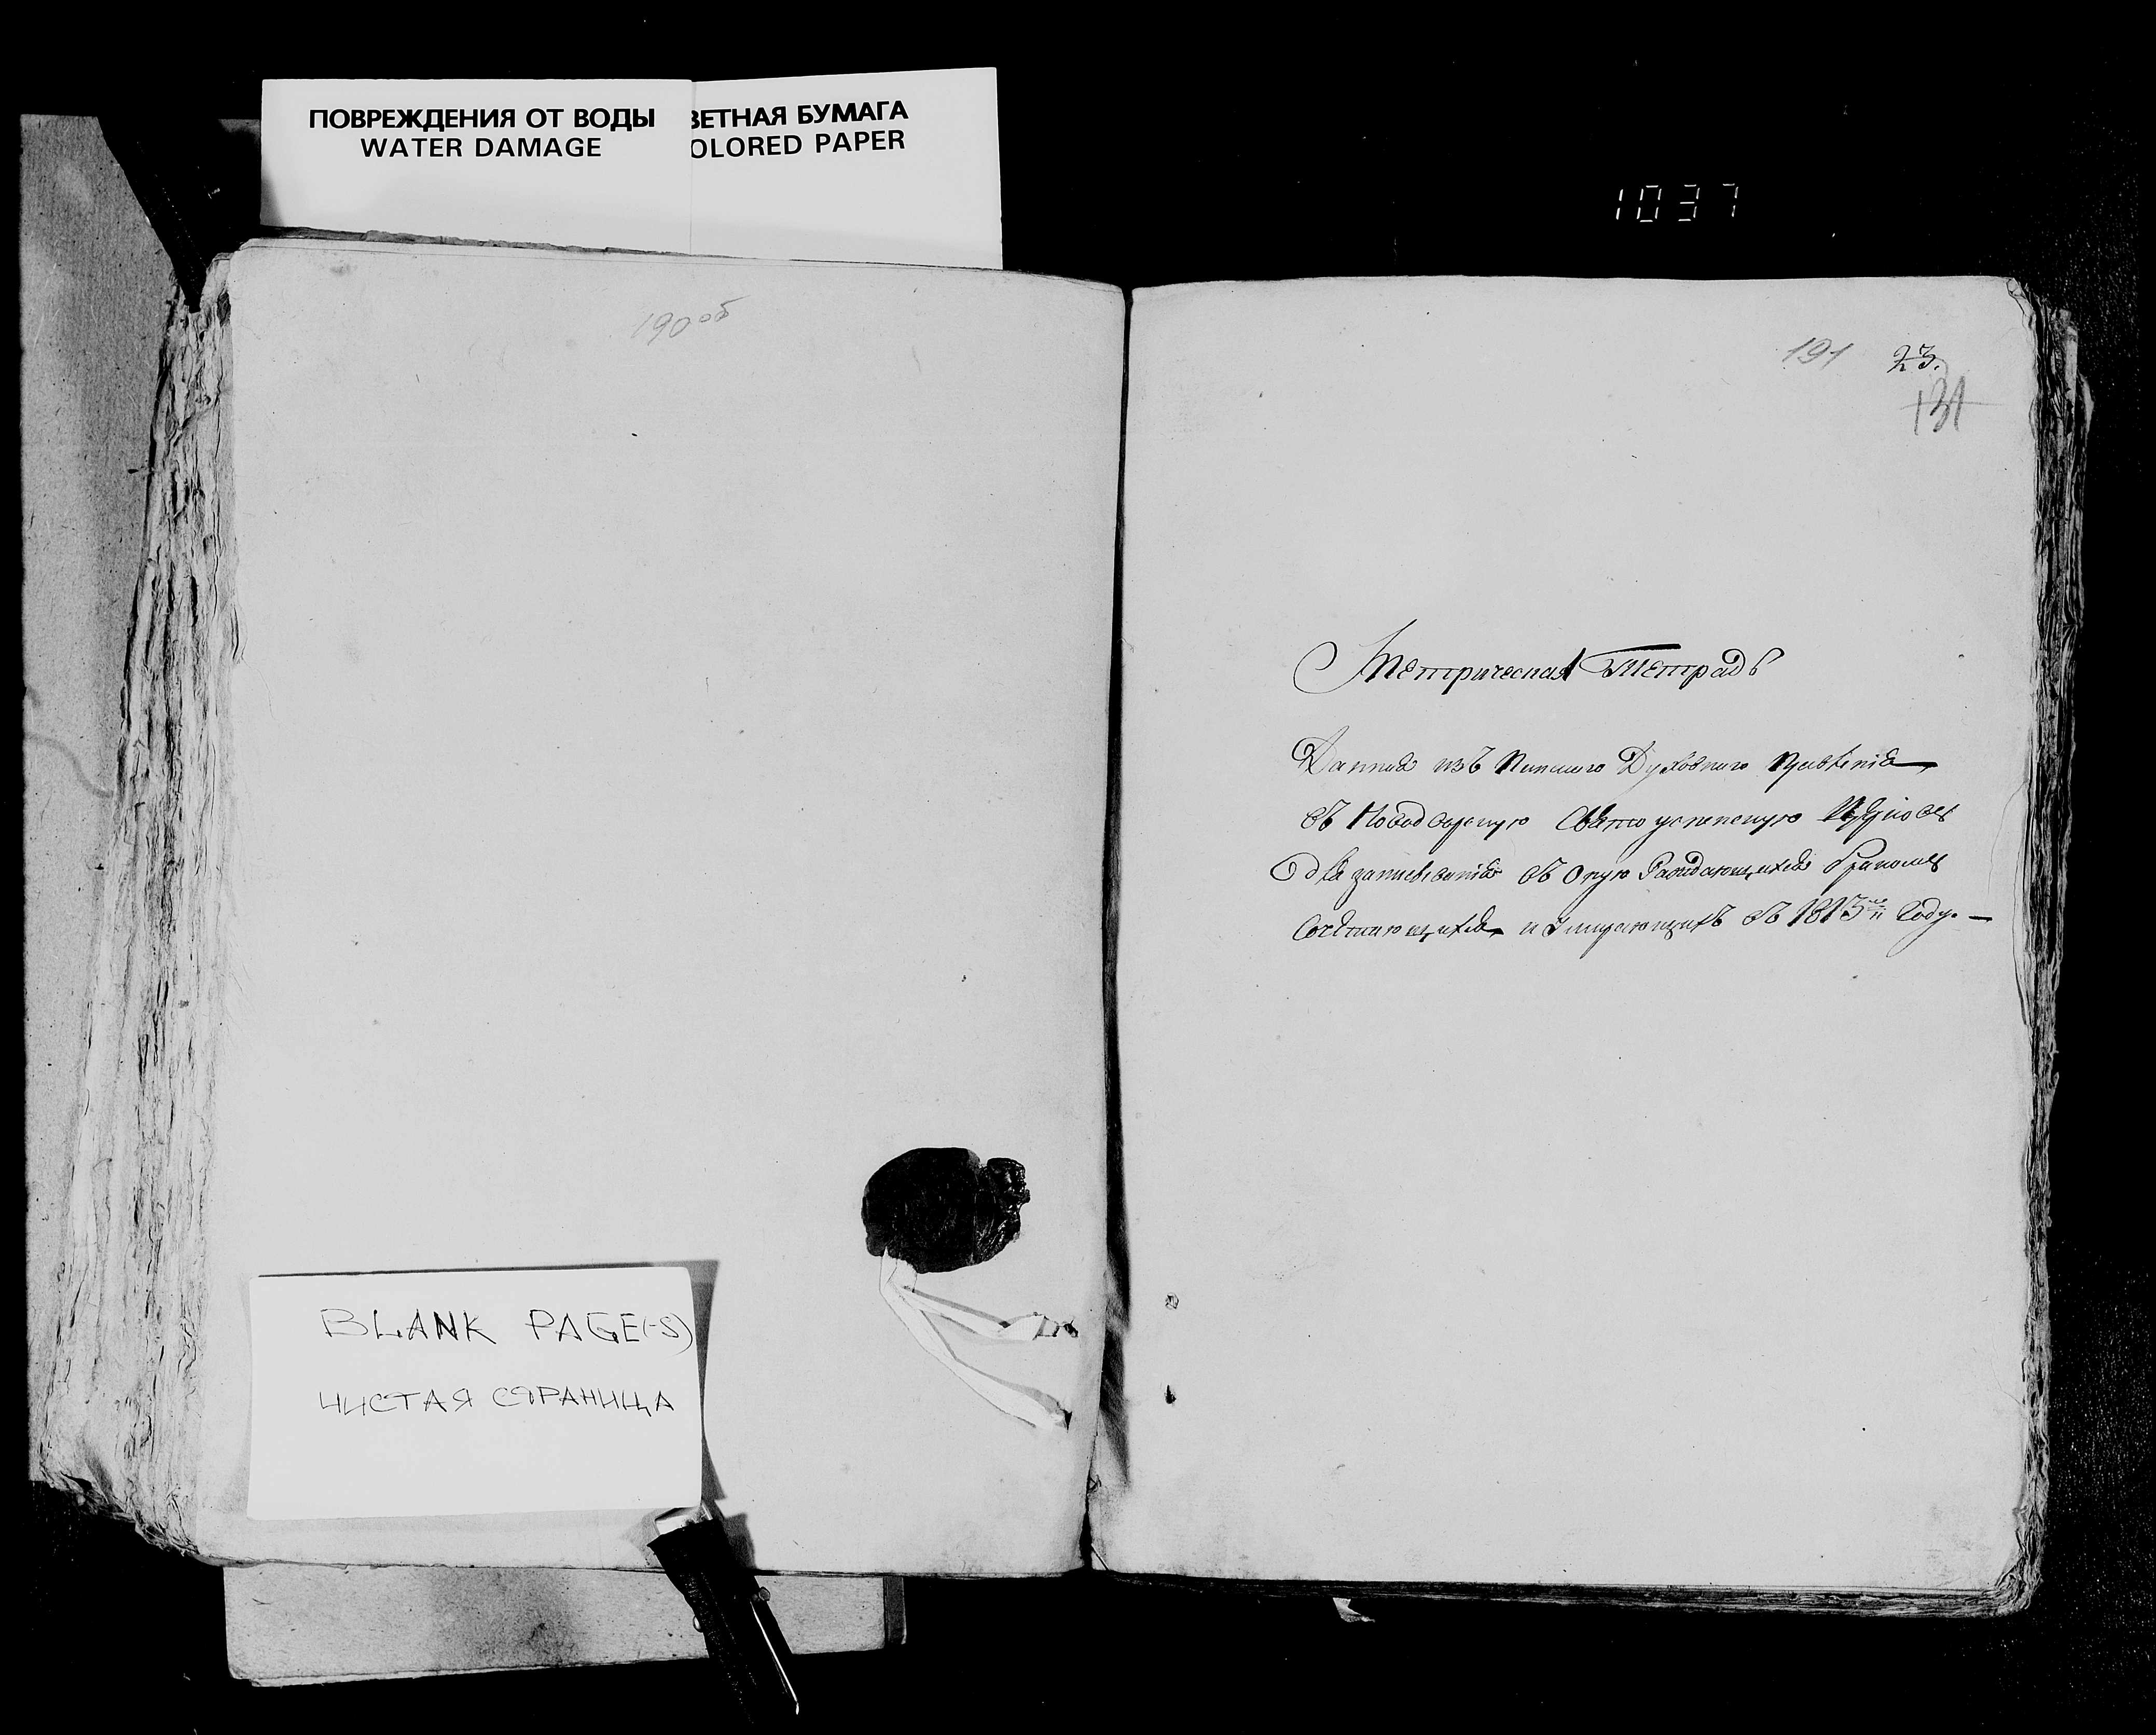 ПОВРЕЖДЕНИЯ ОТ ВОДЫ
WATER DAMAGE
ВЕТНАЯ БУМАГА
OLORED PAPER
1037
190 об
191 23.
131
Метрическая Тетрадь
Данная изъ Пинскаго Духовнаго Правленія
въ Новодворскую Святоуспенскую Церковь
для записыванія въ оную Раждающихся бракомъ
Сочетающихся и Умирающихъ въ 1813м Году.—
BLANK PAGE(-S)
ЧИСТАЯ СТРАНИЦА